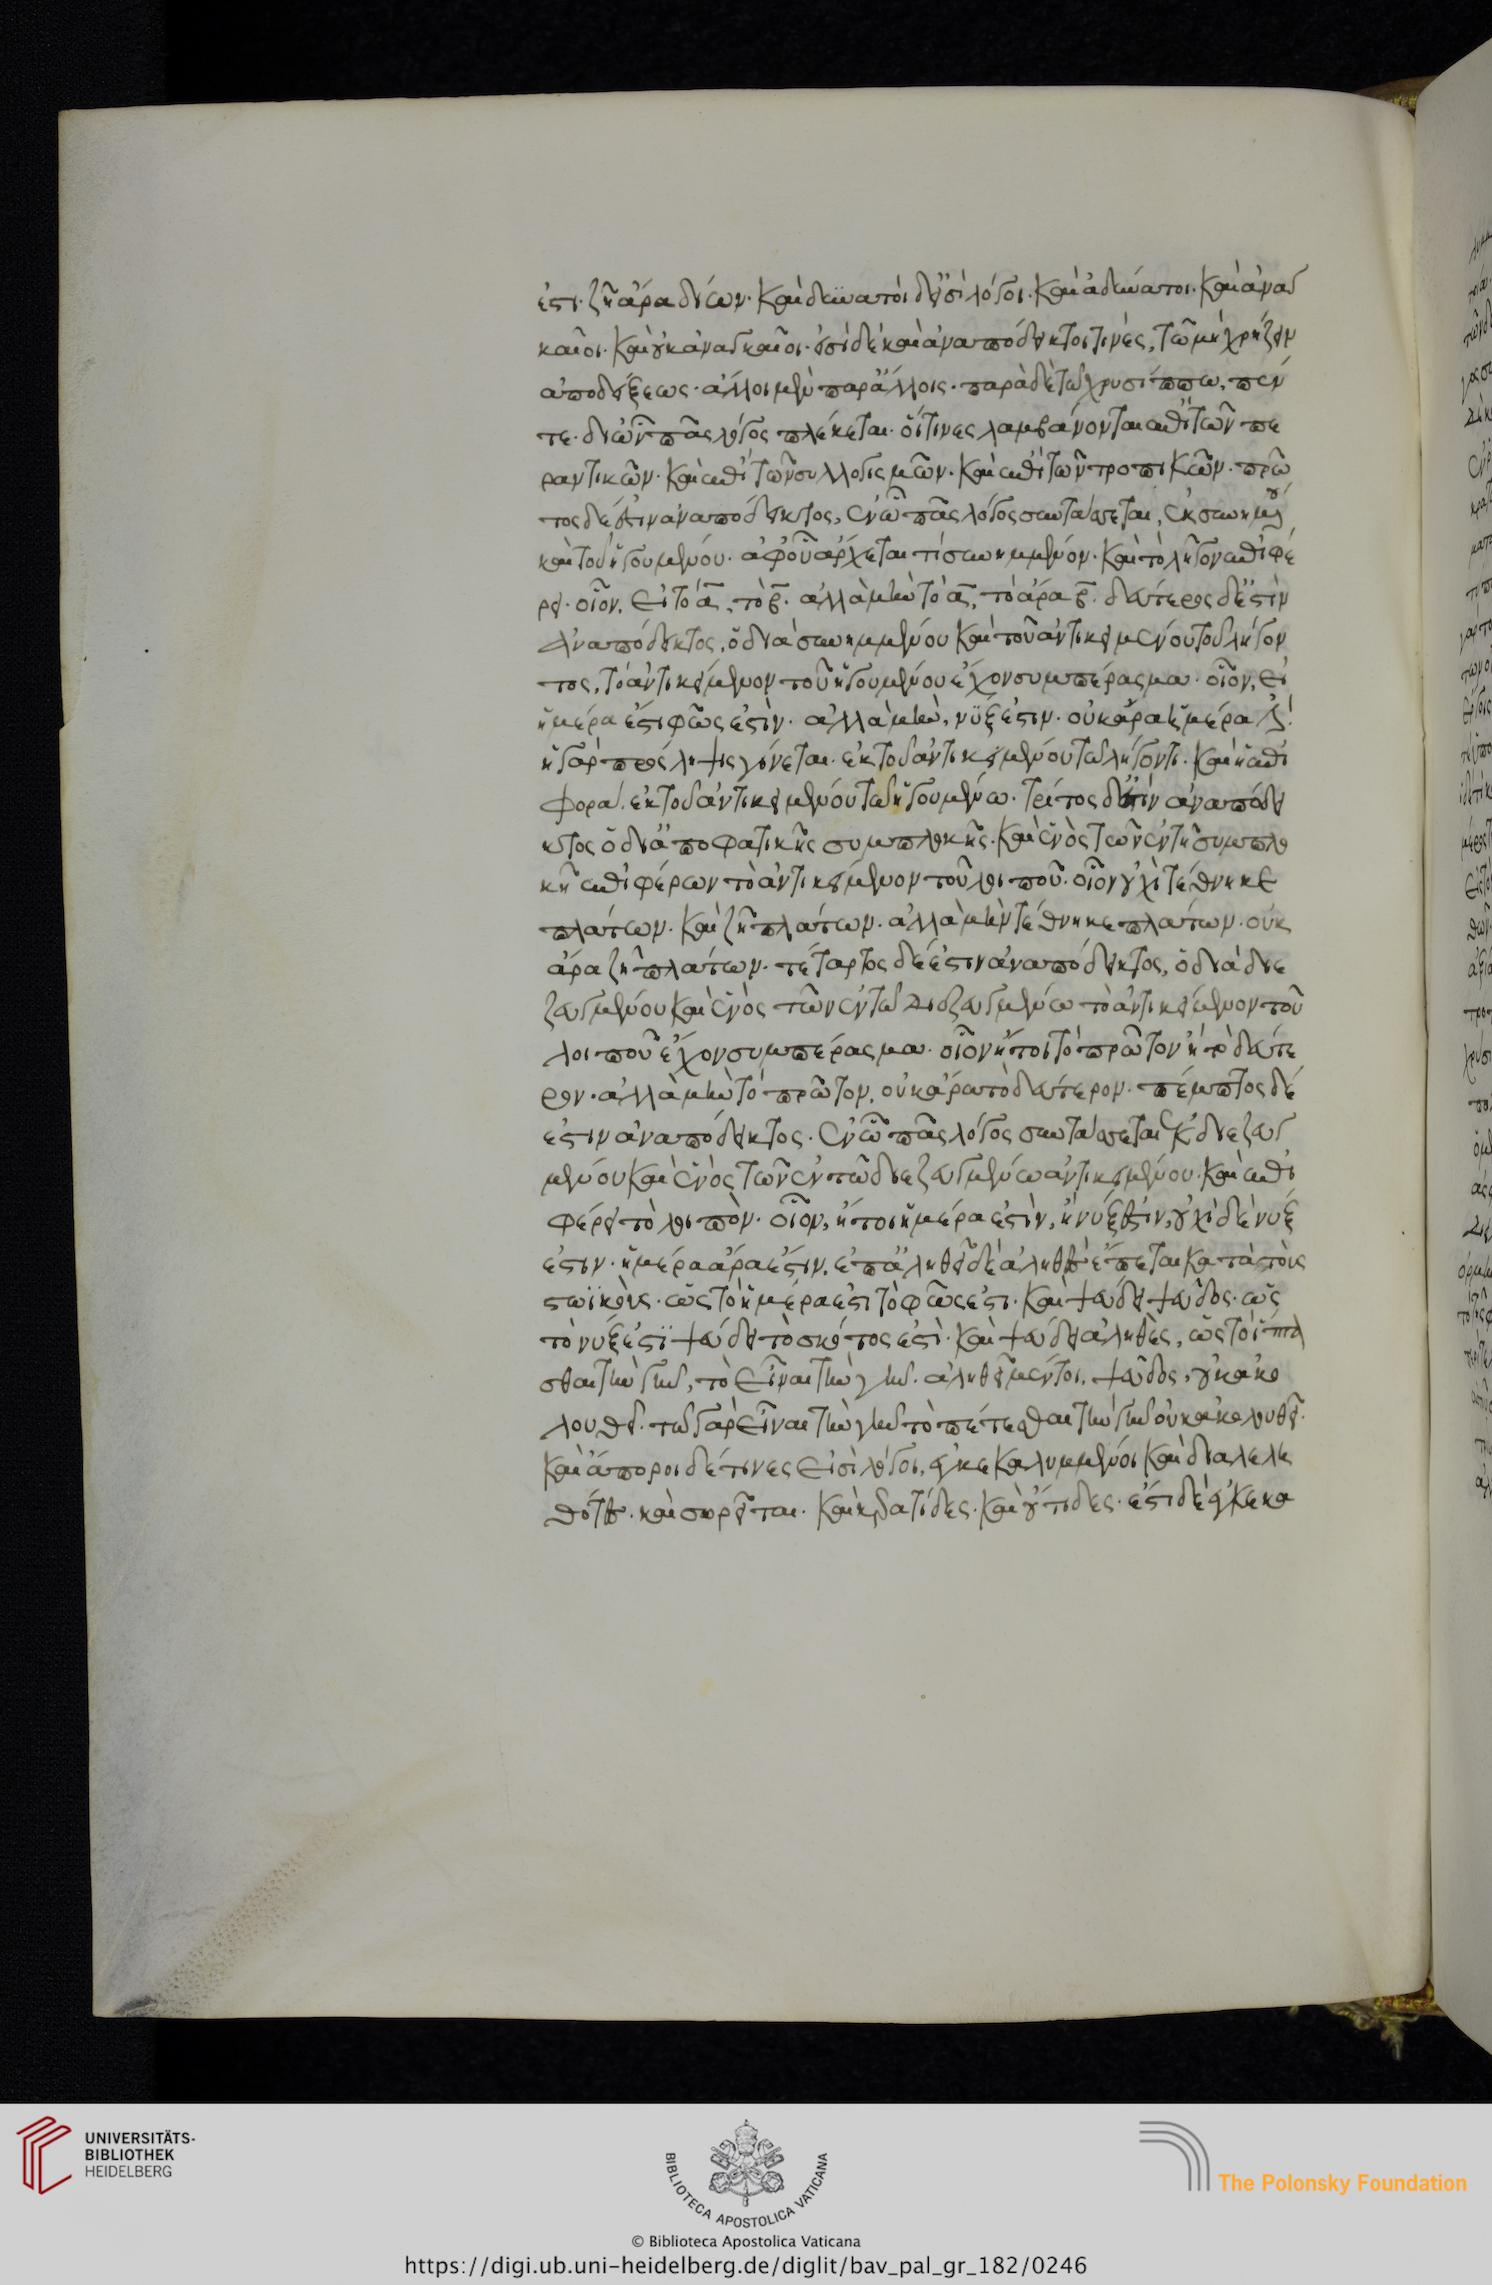 ἐστι. ζῆ ἄρα δίων. καὶ δυνατοὶ δ' εἰσὶ λόγοι. καὶ ἀδύνατοι. καὶ ἀναγ
καῖοι. καὶ οὐκ ἀναγκαῖοι. εἰσὶ δὲ καὶ ἀναπόδεικτοι τινὲς, τῷ μὴ χρήζειν
ἀποδείξεως. ἄλλοι μὲν παρ' ἄλλοις. παρὰ δὲ τῷ χρυσίππω, πέν
τε. δι' ὧν πᾶς λόγος πλέκεται. οἵτινες λαμβάνονται ἐπὶ τῶν πε
ραντικῶν. καὶ ἐπὶ τῶν συλλογισμῶν. καὶ ἐπὶ τῶν τροπικῶν. πρῶ
τος δέ ἐστιν ἀναπόδεικτος, ἐν ᾧ πᾶς λόγος συντάσσεται, ἐκ συνημμένου
καὶ τοῦ ἡγουμένου. ἀφ' οὗ ἄρχεται τὸ συνημμένον. καὶ τὸ λῆγον ἐπιφέ
ρει. οἷον, εἰ τὸ α, τὸ β. ἀλλὰ μὴν τὸ α, τὸ ἄρα β. δεύτερος δ' ἐστὶν
ἀναπόδεικτος, ὁ διὰ συνημμένου καὶ τοῦ ἀντικειμένου τοῦ λήγον
τος, τὸ ἀντικείμενον τοῦ ἡγουμένου ἔχον συμπέρασμα. οἷον, εἰ
ἡμέρα ἐστι φῶς ἐστὶν. ἀλλὰ μὴν, νύξ ἐστιν. οὐκ ἄρα ἡμέρα ἐστί.
ἡ γὰρ πρόσληψις γίνεται. ἐκ τοῦ ἀντικειμένου τῷ λήγοντι. καὶ ἡ ἐπι
φορὰ. ἐκ τοῦ ἀντικειμένου τῷ ἡγουμένω. τρίτος δ' ἐστὶν ἀναπόδει
κτος ὁ δι' ἀποφατικῆς συμπλοκῆς. καὶ ἑνὸς τῶν ἐν τῇ συμπλο
κῇ ἐπιφέρων τὸ ἀντικείμενον τοῦ λοιποῦ. οἷον οὐχὶ τέθνηκε
πλάτων. καὶ ζῆ πλάτων. ἀλλὰ μὴν τέθνηκε πλάτων. οὐκ
ἄρα ζῆ πλάτων. τέταρτος δέ ἐστιν ἀναπόδεικτος, ὁ διὰ διε
ζευγμένου καὶ ἑνὸς τῶν ἐν τῷ διεζευγμένω τὸ ἀντικείμενον τοῦ
λοιποῦ ἔχον συμπέρασμα. οἷον ἤτοι τὸ πρῶτον ἢ τὸ δεύτε
ρον. ἀλλὰ μὴν τὸ πρῶτον, οὐκ ἄρα τὸ δεύτερον. πέμπτος δέ
ἐστιν ἀναπόδεικτος. ἐν ᾧ πᾶς λόγος συντάσσεται ἐκ διεζευγ
μένου καὶ ἑνὸς τῶν ἐν τῷ διεζευγμένω ἀντικειμένου. καὶ ἐπι
φέρει τὸ λοιπὸν. οἷον, ἤτοι ἡμέρα ἐστὶν, ἢ νύξ ἐστὶν, οὐχὶ δὲ νύξ
ἐστιν. ἡμέρα ἄρα ἐστιν. ἐπ' ἀληθεῖ δὲ ἀληθὲς ἕπεται κατὰ τοὺς
στωϊκοὺς. ὡς τὸ ἡμέρα ἐστι τὸ φῶς ἐστι. καὶ ψεύδει ψεῦδος. ὡς
τὸ νύξ ἐστὶ ψεύδει τὸ σκότος ἐστὶ. καὶ ψεύδει ἀληθὲς, ὡς τὸ ἵπτα
σθαι τὴν γῆν, τὸ εἶναι τὴν γῆν. ἀληθεῖ μέντοι, ψεῦδος, οὐκ ἀκο
λουθεῖ. τῷ γὰρ εἶναι τὴν γῆν τὸ πέτεσθαι τὴν γῆν οὐκ ἀκολουθεῖ.
καὶ ἄποροι δέ τινες εἰσὶ λόγοι, ἐγκεκαλυμμένοι καὶ διαλελη
θότες. καὶ σωρεῖται. καὶ κερατίδες. καὶ οὔτιδες. ἔστι δὲ ἐγκεκα
UNIVERSITÄTS-
BIBLIOTHEK
HEIDELBERG
BIBLIOTECA APOSTOLICA VATICANA
The Polonsky Foundation
© Biblioteca Apostolica Vaticana
https://digi.ub.uni-heidelberg.de/diglit/bav_pal_gr_182/0246